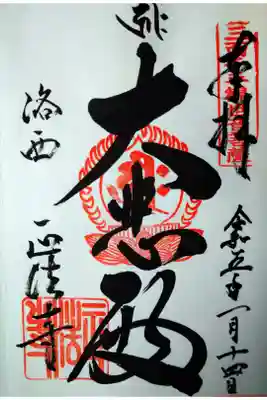 奉拝
令和五年一月十四日
大悲殿
洛西
正法寺